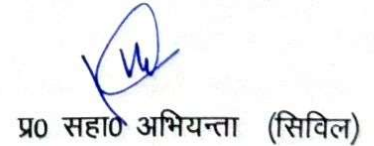 प्र0 सहा0 अभियन्ता (सिविल)